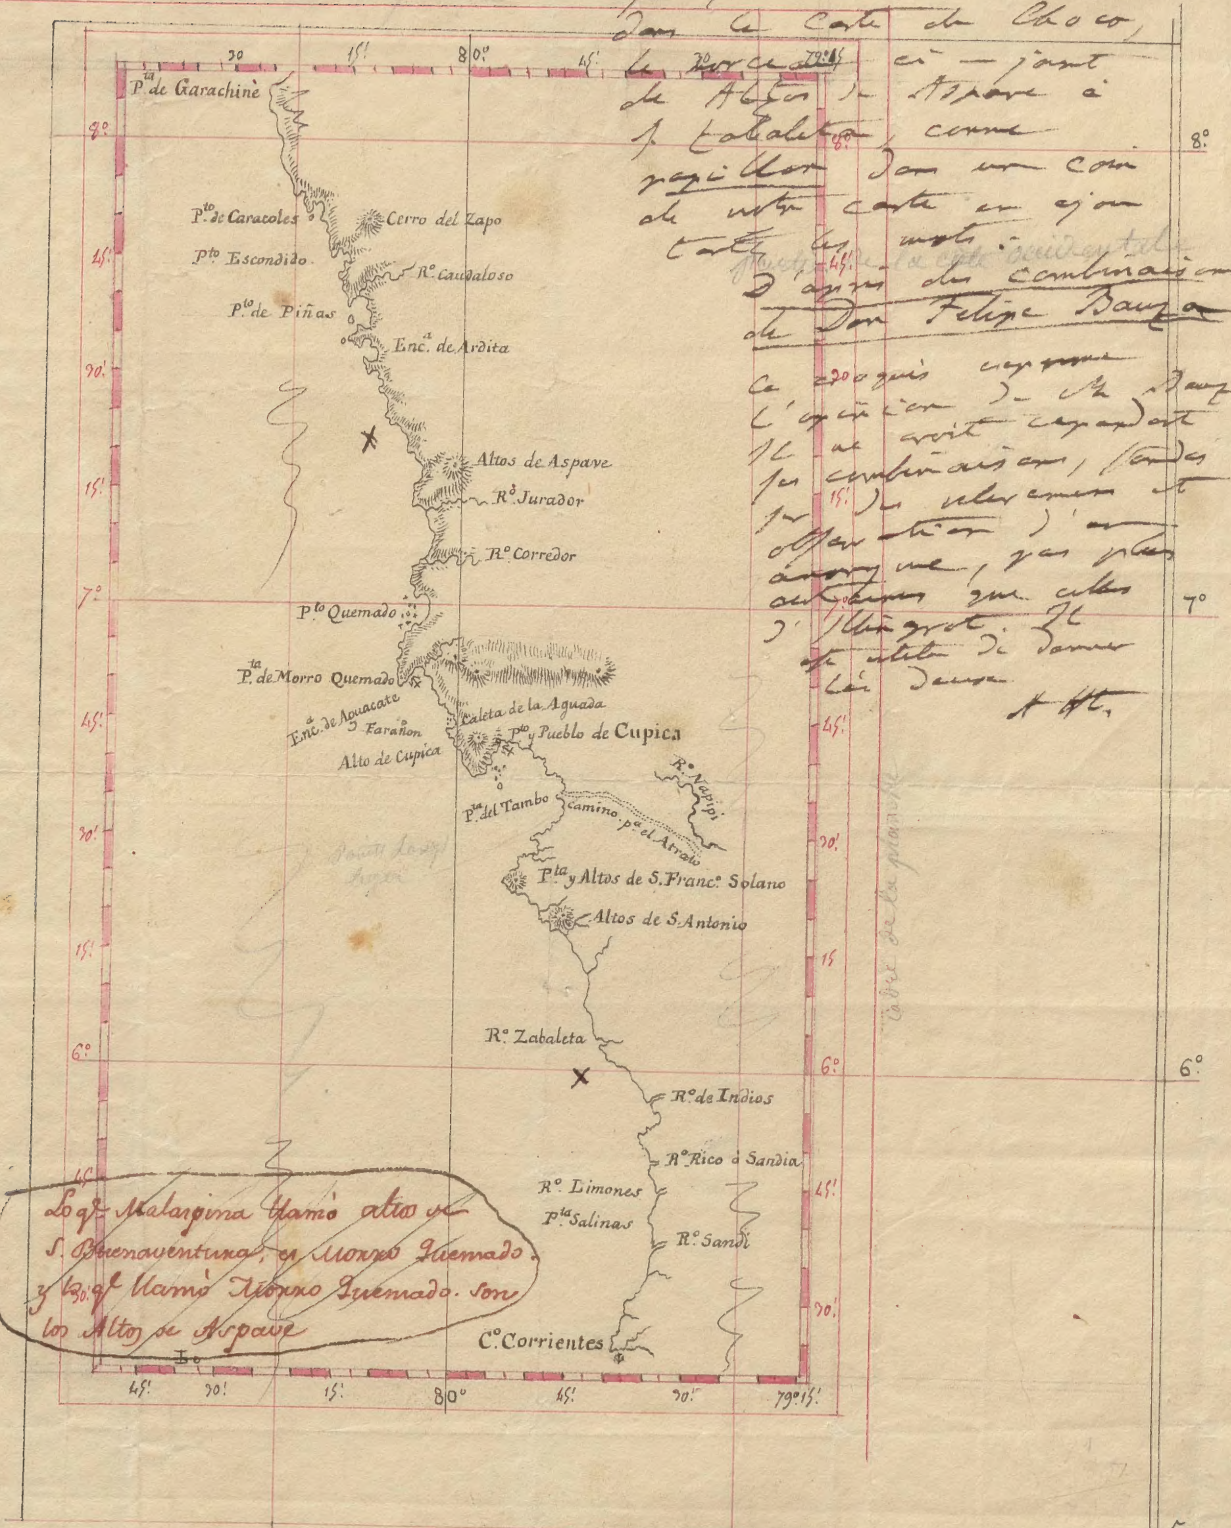 dans la Carte du Choco,
le morceau ci-joint
de Altos de Aspave à
comme
papillon dans un coin
de notre carte en ajou
tant les mots:
partie de la côte occidentale
D'après des combinaisons
de Don Felipe Bauza
Ce croquis exprime
l'opinion de Mr Bauz
Il ne croit cependant
ses combinaisons, fondées
sur des relevemens et
observations d'un
anonyme, pas plus
certaines que celles
d'Illingrot. Il
est utile de donner
les deux
A Ht.
30 15' 80° 45' 30' 79°15'
Pta de Garachinè
8° 8° 8°
Pto de Caracoles
Cerro del Zapo
Pto Escondido
45' 45'
Ro Caudaloso
Pto de Piñas
Enca de Ardita
30' 30'
Altos de Aspave
15' 15'
Ro Jurador
Ro Corredor
7° 7°
Pto Quemado
Pta de Morro Quemado
Enca de Aguacate
Farañon
Caleta de la Aguada
45' 45'
Pto y Pueblo de Cupica
Alto de Cupica
Ro Napipi
Pta del Tambo
Camino pa el Atrato
30' 30'
Pta y Altos de S. Franco Solano
Altos de S. Antonio
cadre de la planche
15' 15
Ro Zabaleta
6° 6° 6°
Ro de Indios
Ro Rico ó Sandia
45' 45'
Ro Limones
Pta Salinas
Ro Sandi
Lo qe Malaspina llamó altos de
S. Buenaventura, es Morro Quemado.
y lo qe llamó Morro Quemado. son
los Altos de Aspave
30' 30'
Co Corrientes
45' 30' 15' 80° 45' 30' 79°15'